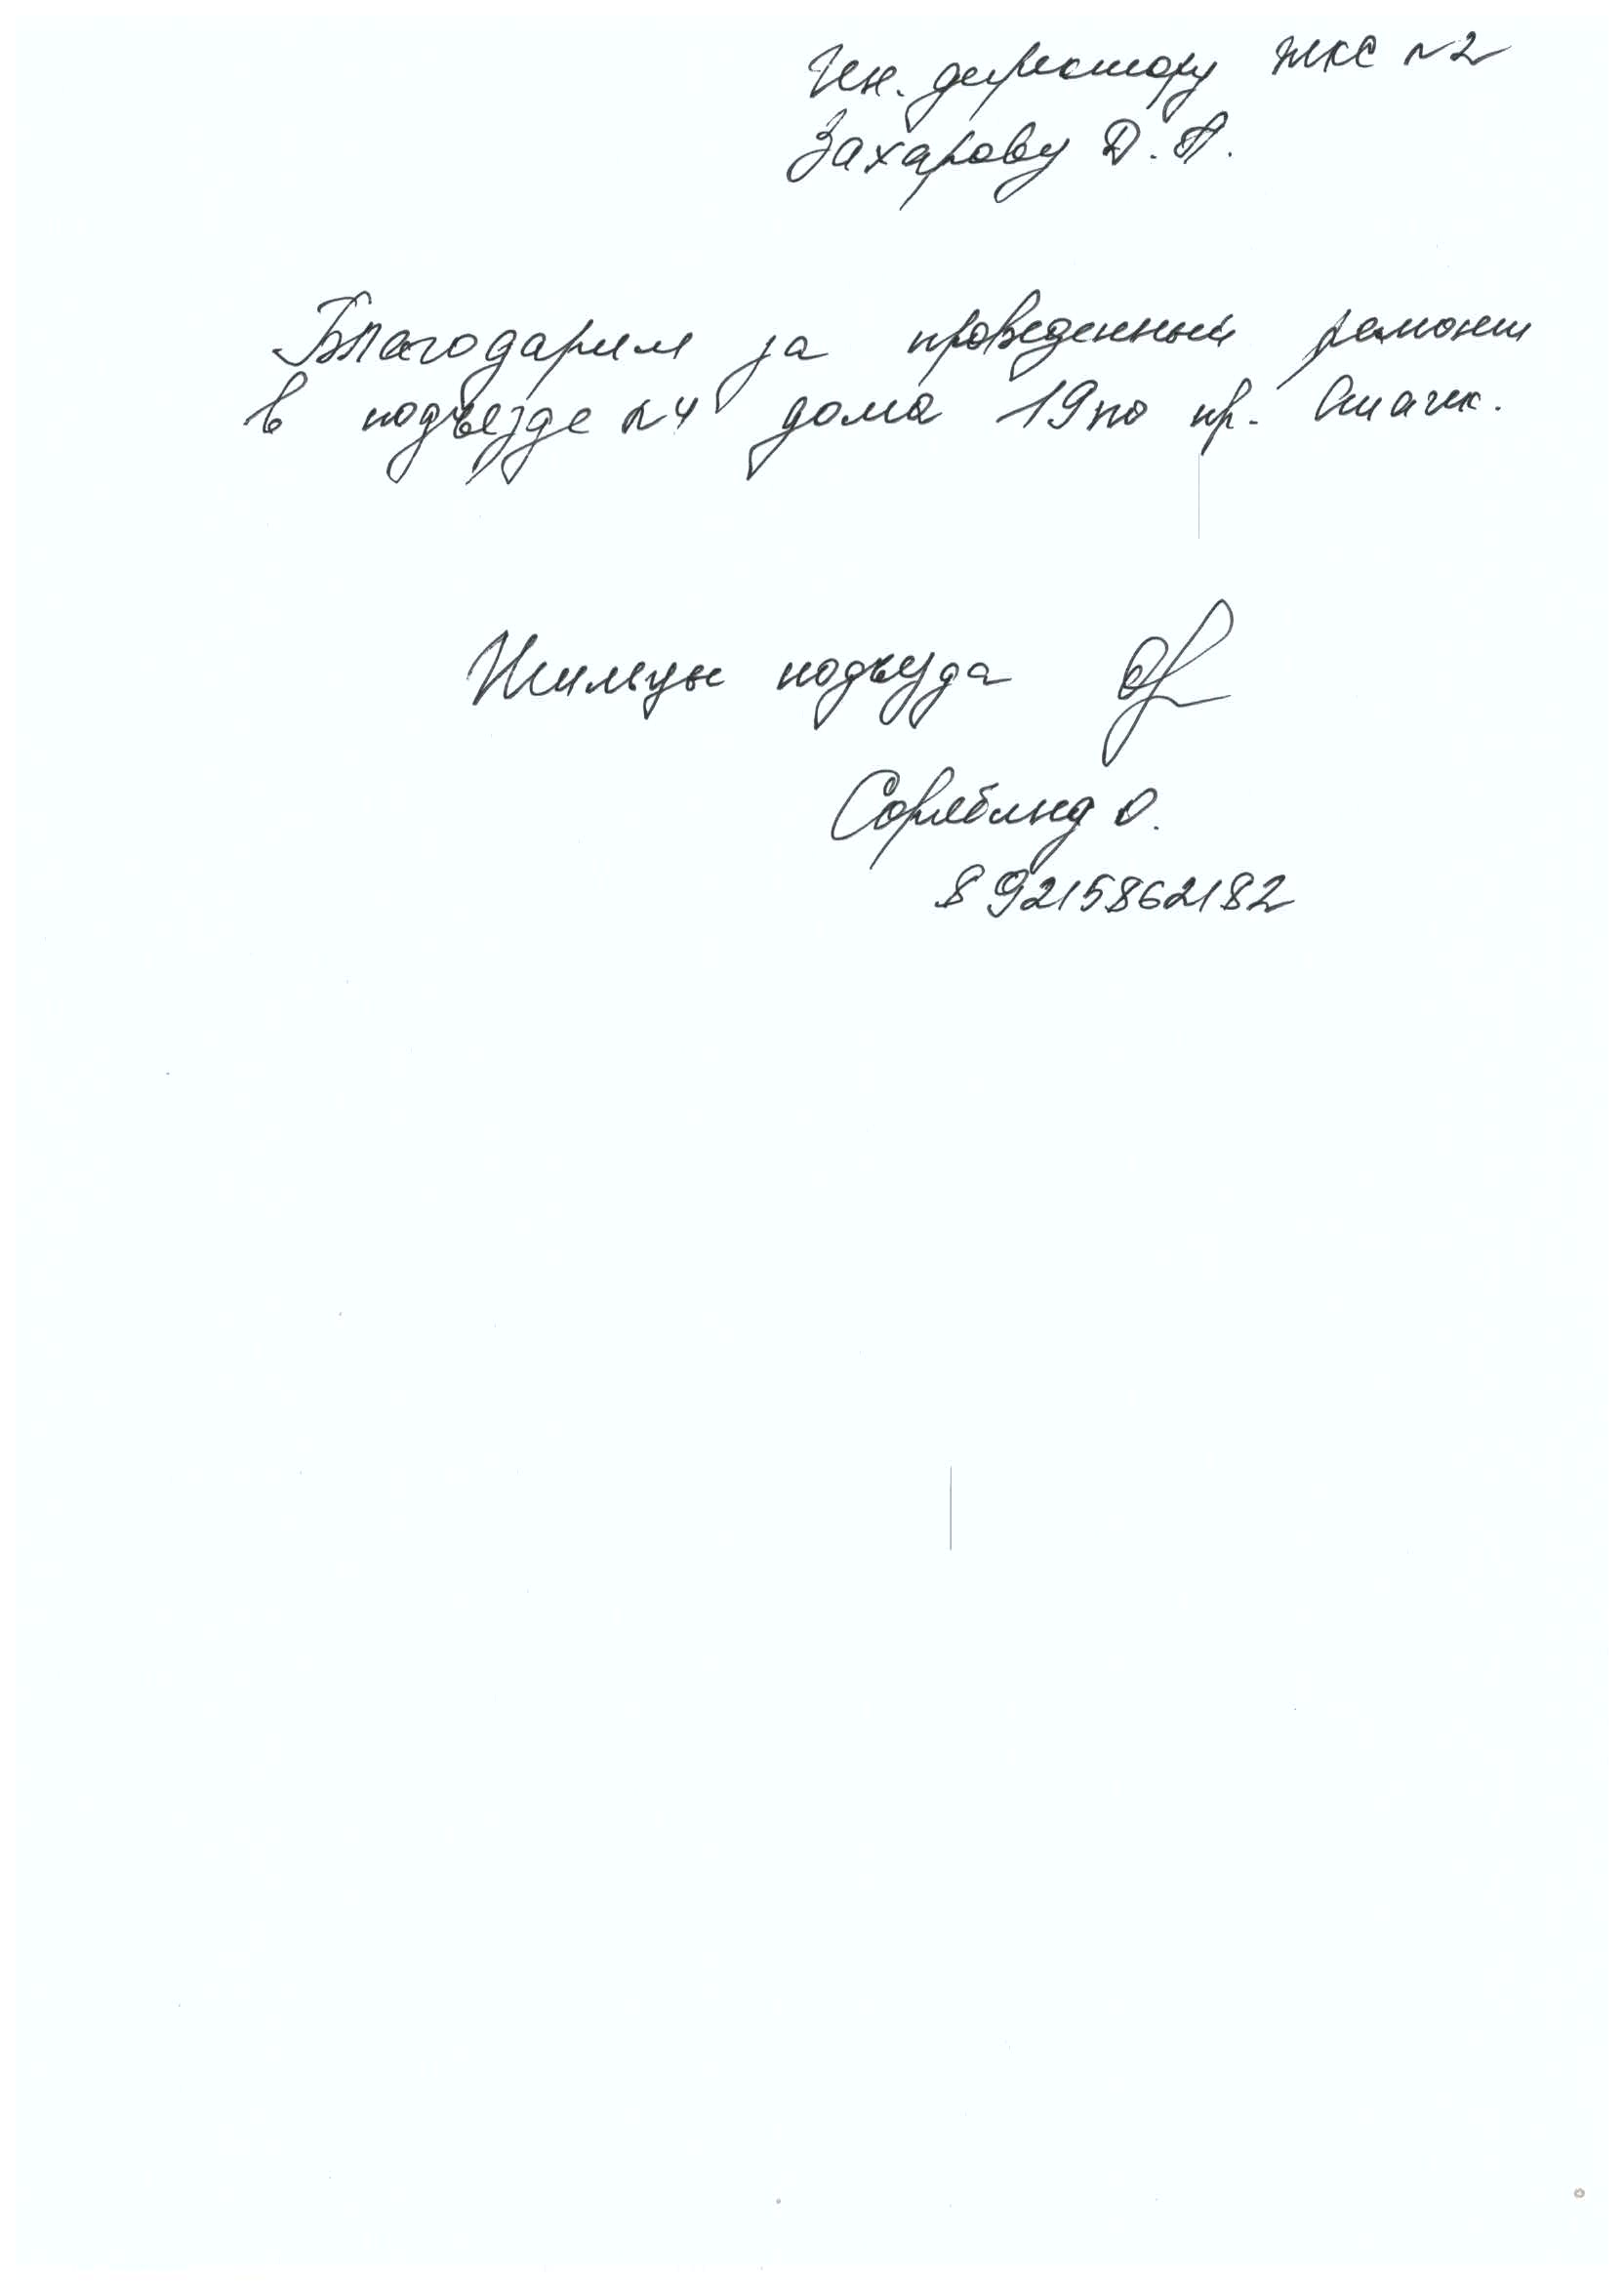 Ген. директору ЖКС №2
Захарову Д. П.
Благодарим за проведенный ремонт
в подъезде №4 дома 19 по пр. Стачек.
Жильцы подъезда
О.
89215862182